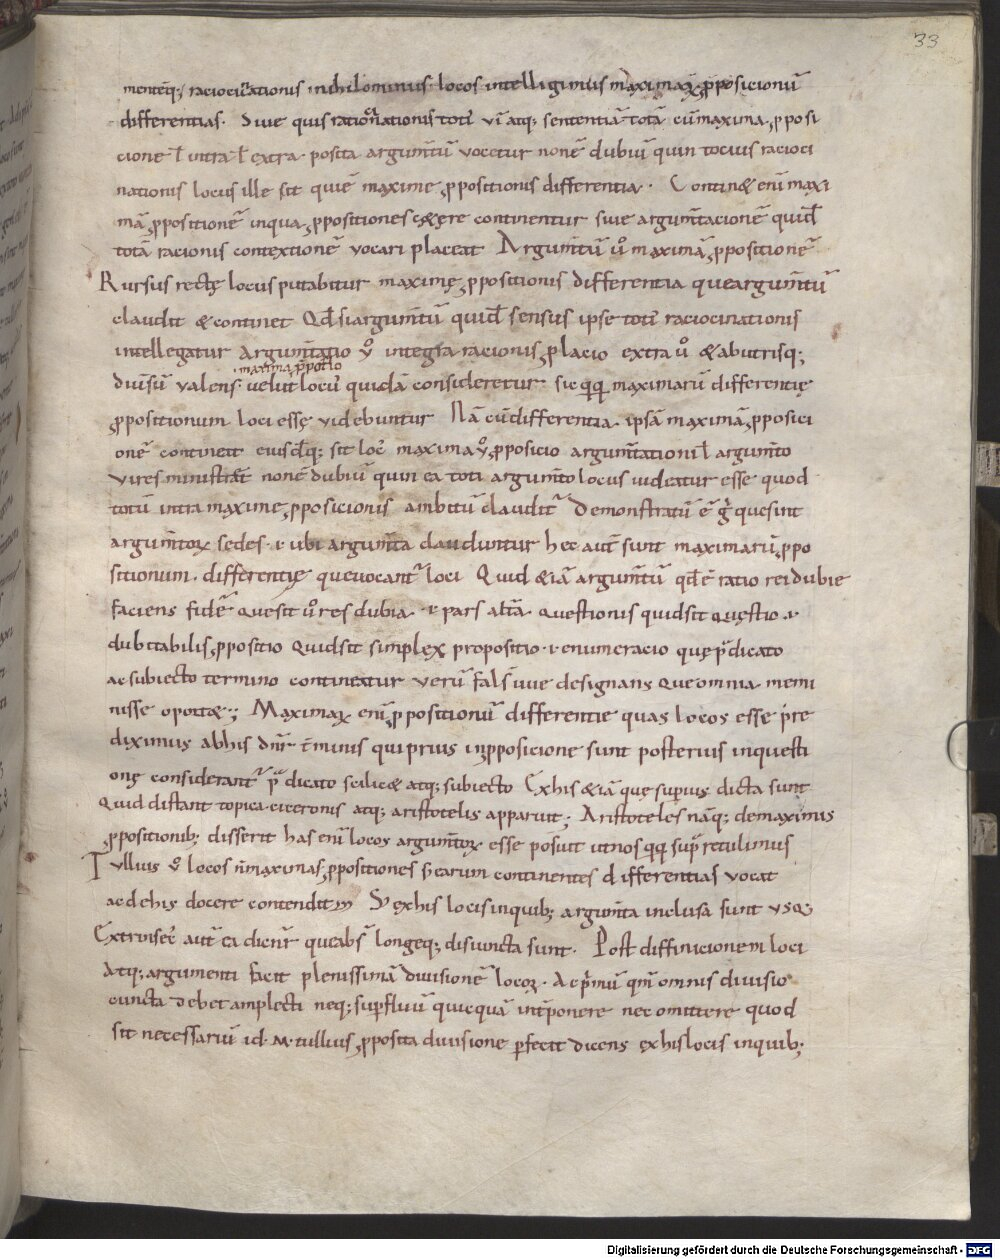 33
menteq; raciocinationis nihilominus locos intelligimus maximaꝝ ꝓposicionū
differentias. Siue quis rationationis totī uī atq; sententiā totā cū maxima ꝓposi
cione ł intra ł extra posita argumtū uocetur nonē dubiū quin tocius racioci
nationis locus ille sit quiē maxime ꝓpositionis differentia. Contin& enī maxi
mā ꝓpositionē inqua ꝓpositiones c&ere continentur siue argumtacionē quidē
totā racionis contextionē uocari placeat Argumtū ů maximā ꝓpositionē
Rursus rectę locus putabitur maximę ꝓpositionis differentia que argumtū
claudit & continet Qđ si argumtū quidē sensus ipse totī raciocinationis
intellegatur argumtatio ů integra racionis ꝓlacio extra ů & abutrisq;
maxima ꝓpotio
diuisū ualens uelut locū quidā consideretur sic qq; maximarū differentię
ꝓpositionum loci essę uidebuntur Nā cū differentia ipsā maximā ꝓposici
onē contineat eiusdēq; sit loc maxima ů ꝓposicio argumtationi ł argumto
uires ministrat nonē dubiū quin ea toti argumto locus uideatur esse quod
totū intra maxime ꝓposicionis ambitū claudit Demonstratū ē g quesint
argumtoꝝ sedes. & ubi argumta clauduntur hec aut sunt maximarū ꝓpo
sitionum. differentię queuocant loci Quid &iā argumtū qđ ē ratio rei dubie
faciens fidē quesit ů res dubia & pars altā questionis quidsit quęstio
dubitabilis ꝓpositio Quidsit simplex propositio enumeracio quę pdicato
ac subiecto termino contineatur uerū falsūue designans que omnia memi
nisse oport&.; Maximaꝝ enī ꝓpositionū differentie quas locos esse pre
diximus abhis dmr tminis qui prius inꝓposicione sunt posterius inquesti
onę considerant pdicato scilic& atq; subiecto Exhis &iā quę supius dicta sunt
Quid distant topica ciceronis atq; aristotelis apparuit; Aristoteles nāq; demaximis
ꝓpositionib; disserit has enī locos argumtoꝝ esse posuit utnos qq; sup retulimus
Tullius ů locos n maximas ꝓpositiones s earum continentes differentias uocat
ac dehis docere contendit Sȩ exhis locis inquib; argumta inclusa sunt usq;
Extrinsec aut ea dicunr queabs longeq; disiuncta sunt. Post diffinicionem loci
Atq; argumenti facit plenissimā diuisionē locoꝝ. Ac pmū qm omnis diuisio
cuncta debet amplecti neq; supfluū quicquā intponere nec omittere quod
sit necessariū id. M. tullius ꝓposita diuisione pfecit dicens exhis locis inquib;
Digitalisierung gefördert durch die Deutsche Forschungsgemeinschaft - DFG